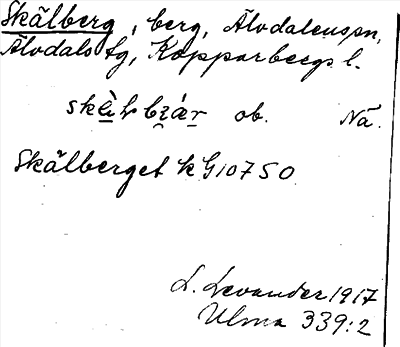 Skålberg, berg, Älvdalens sn,
Älvdals tg, Kopparbergs l.
ob. Nä.
Skålberget k G10750
L. Levander 1917
Ulma 339:2